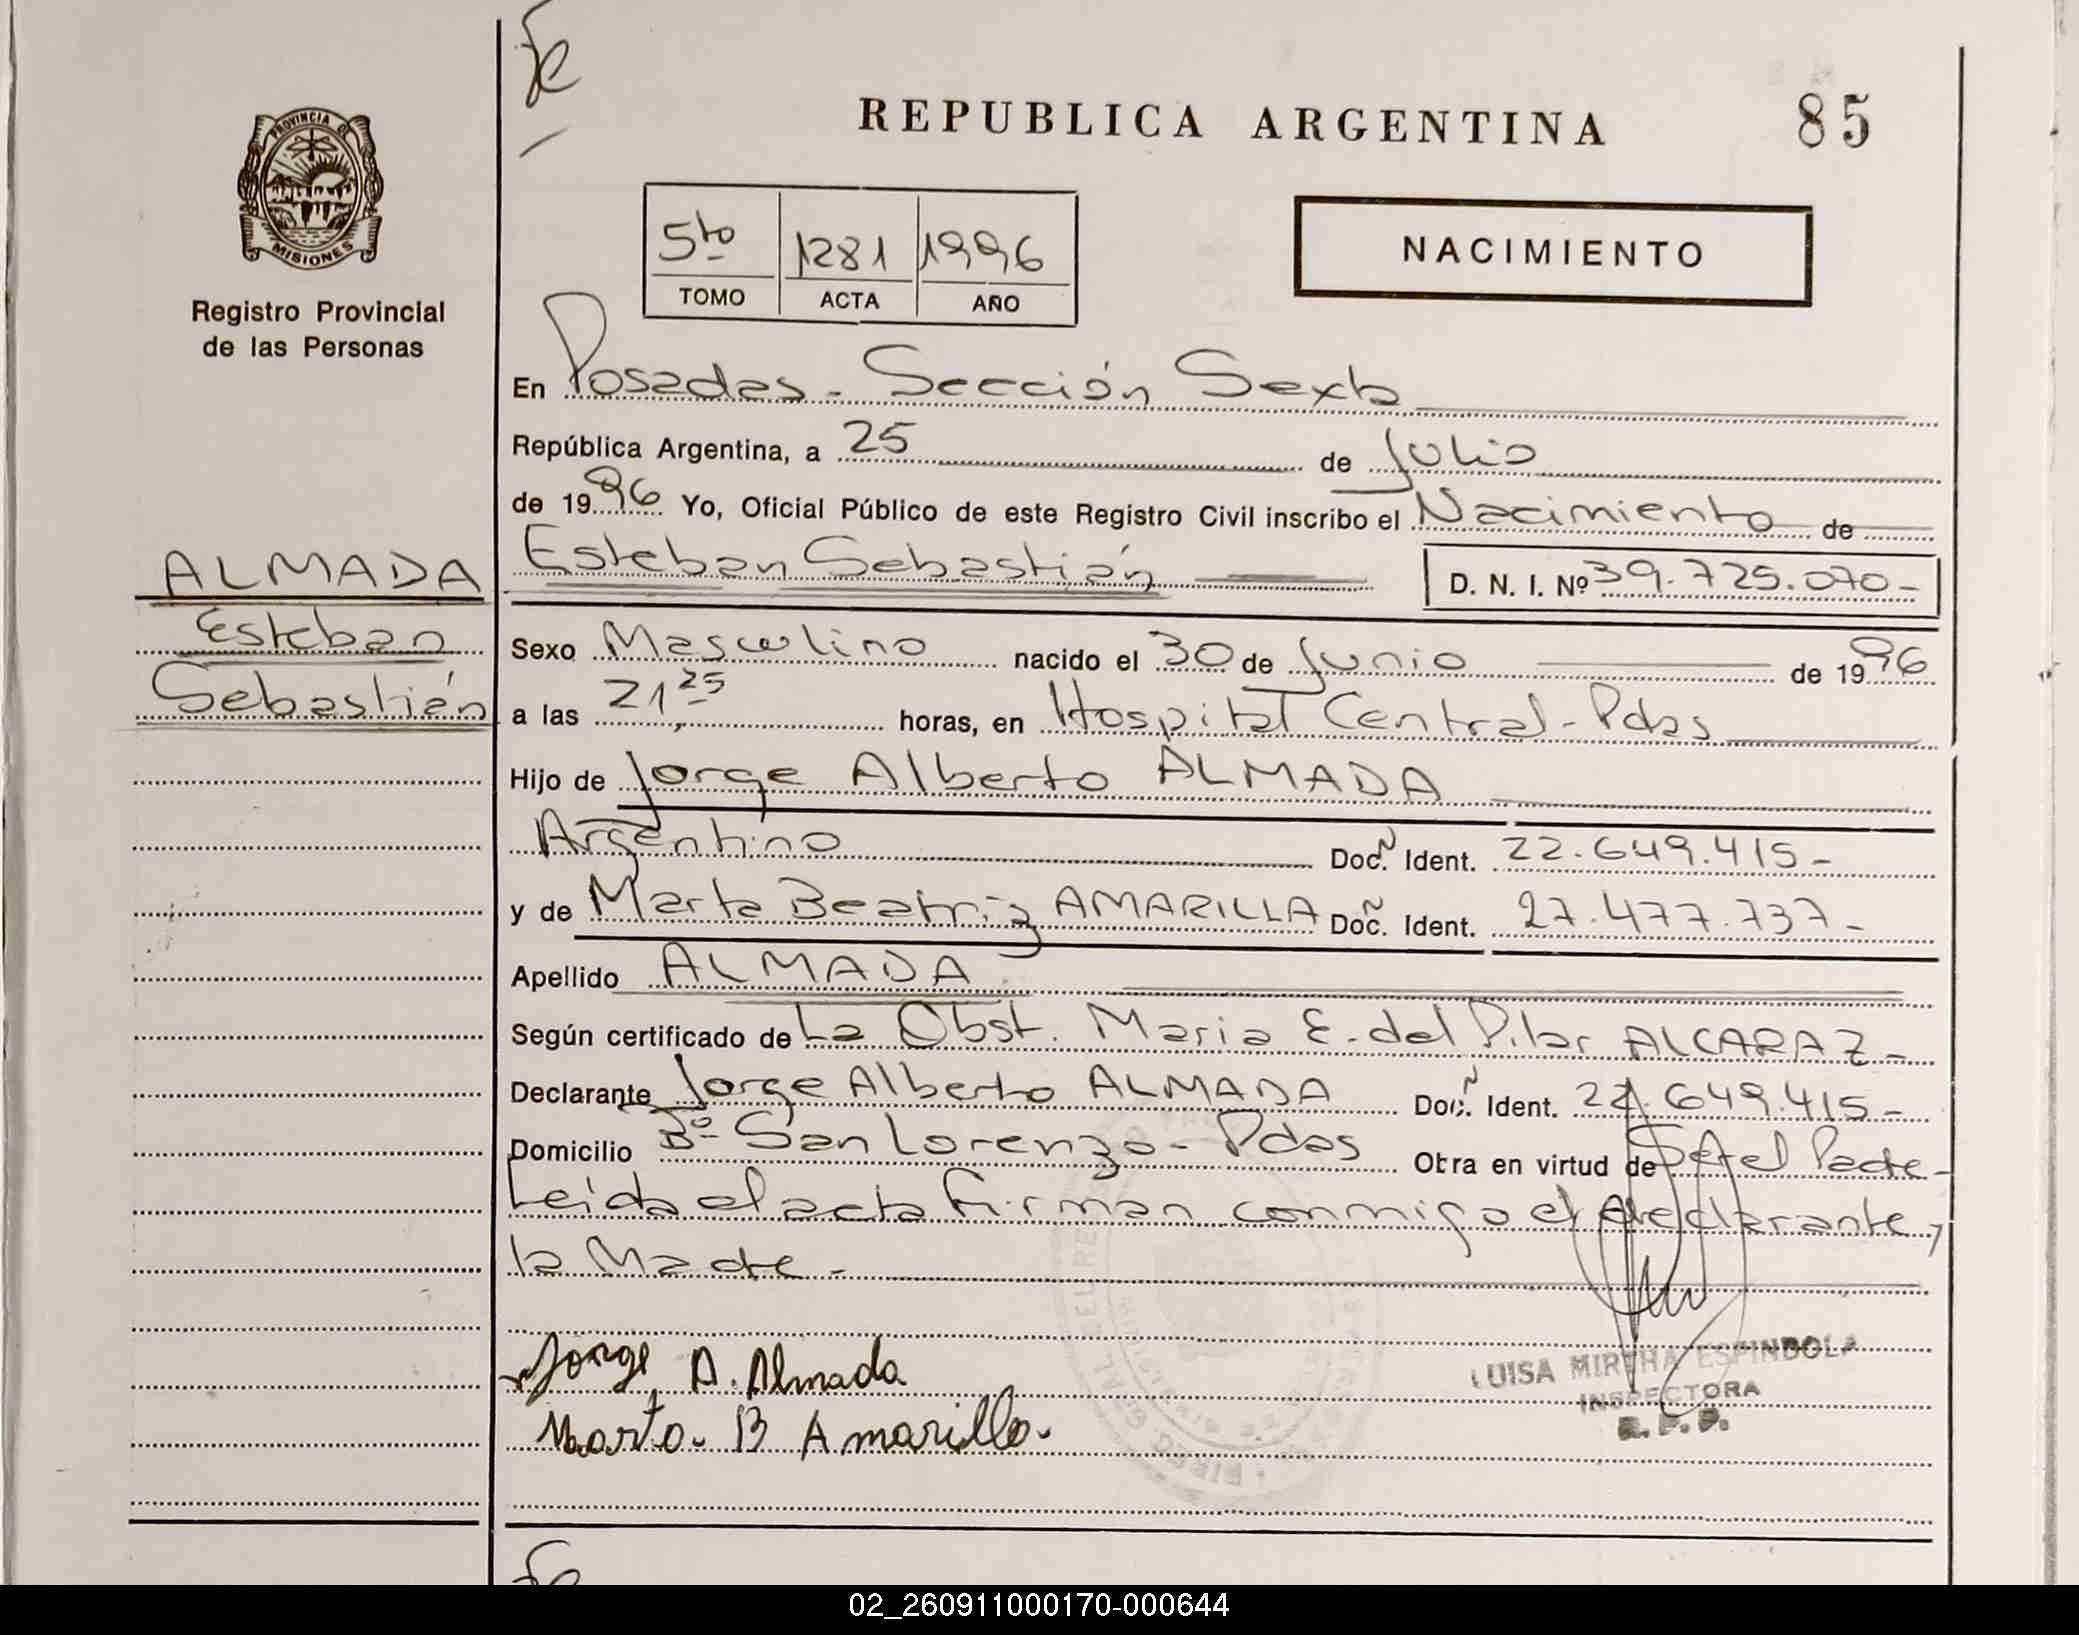 Je
REPUBLICA ARGENTINA
85
PROVINCIA DE
MISIONES
Registro Provincial
de las Personas
5to 1281 1996
TOMO ACTA AÑO
NACIMIENTO
En Posadas - Sección Sexta
República Argentina, a 25 de Julio
de 1996 Yo, Oficial Público de este Registro Civil inscribo el Nacimiento de
Esteban Sebastián D. N. I. Nº 39.725.070-
ALMADA
Esteban
Sebastián
Sexo Masculino nacido el 30 de Junio de 1996
a las 21,25 horas, en Hospital Central - Pdas
Hijo de Jorge Alberto ALMADA
Argentino Doc. Ident. 22.649.415-
y de Marta Beatriz AMARILLA Doc. Ident. 27.477.737-
Apellido ALMADA
Según certificado de La Obst. Maria E. del Pilar ALCARAZ-
Declarante Jorge Alberto ALMADA Doc. Ident. 22.649.415-
Domicilio Bº San Lorenzo - Pdas Obra en virtud de Ser el Padre-
Leida el acta firman conmigo el declarante y
la Madre-
Jorge A. Almada
Marta B Amarilla
LUISA MIRTHA ESPINDOLA
INSPECTORA
R.P.P.
02_260911000170-000644